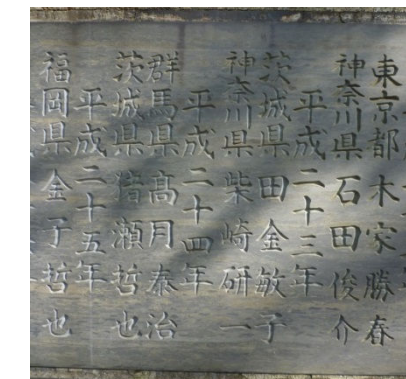 東京都 木家勝春
神奈川県 石田俊介
平成二十三年
茨城県 田金敏子
神奈川県 柴崎研一
平成二十四年
群馬県 高月泰治
茨城県 猪瀬哲也
平成二十五年
福岡県 金子哲也